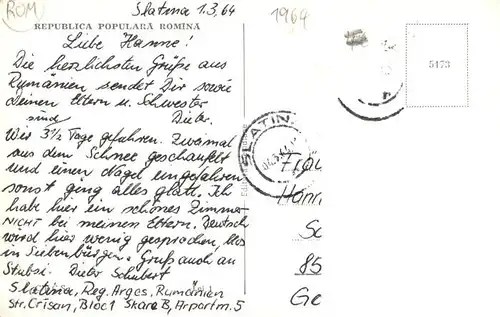 ROM
Slatina 1.3.64
1964
REPUBLICA POPULARĂ ROMÎNĂ
Liebe Hanne!
Die herzlichsten Grüße aus
Rumänien sendet Dir sowie
deinen Eltern u. Schwester
Dieter.
5173
SLATIN
Wir 3½ Tage gefahren. Zwasmal
aus dem Schnee geschaufelt
und einen Nagel eingefahren
sonst ging alles glatt. Ich
hab hier ein schönes Zimmer
NICHT bei meinen Eltern. Deutsch
wird hier wenig gesprochen, blos
in Siebenbürgen. Gruß auch an
Stubsi. Dieter Schubert
Slatina, Reg. Arges, Rumänien
Str. Crisan, Bloc 1 Skara B, Arpartm. 5
Hann
85
Ge